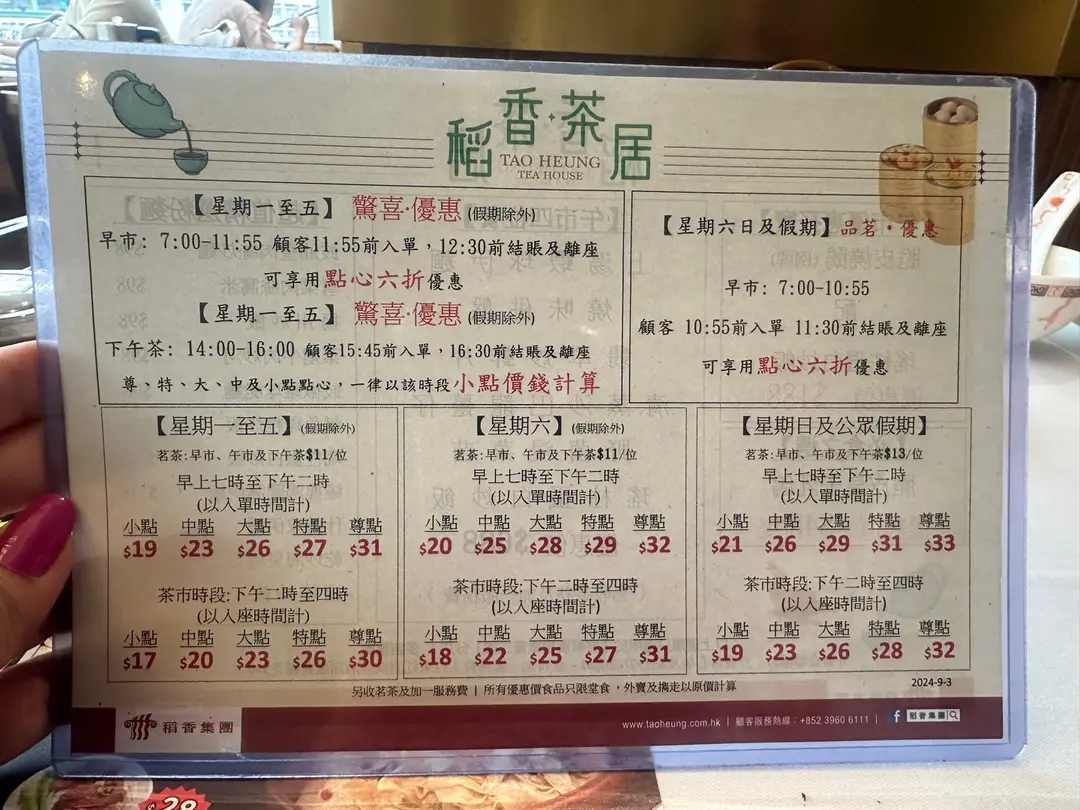 稻香·茶居
TAO HEUNG
TEA HOUSE
【星期一至五】 驚喜·優惠 (假期除外)
早市: 7:00-11:55 顧客11:55前入單，12:30前結賬及離座
可享用點心六折優惠
【星期一至五】 驚喜·優惠 (假期除外)
下午茶: 14:00-16:00 顧客15:45前入單，16:30前結賬及離座
尊、特、大、中及小點點心，一律以該時段小點價錢計算
【星期六日及假期】品茗·優惠
早市: 7:00-10:55
顧客 10:55前入單 11:30前結賬及離座
可享用點心六折優惠
【星期一至五】(假期除外)
茗茶:早市、午市及下午茶$11/位
早上七時至下午二時
(以入單時間計)
小點 中點 大點 特點 尊點
$19 $23 $26 $27 $31
茶市時段:下午二時至四時
(以入座時間計)
小點 中點 大點 特點 尊點
$17 $20 $23 $26 $30
【星期六】(假期除外)
茗茶:早市、午市及下午茶$11/位
早上七時至下午二時
(以入單時間計)
小點 中點 大點 特點 尊點
$20 $25 $28 $29 $32
茶市時段:下午二時至四時
(以入座時間計)
小點 中點 大點 特點 尊點
$18 $22 $25 $27 $31
【星期日及公眾假期】
茗茶:早市、午市及下午茶$13/位
早上七時至下午二時
(以入單時間計)
小點 中點 大點 特點 尊點
$21 $26 $29 $31 $33
茶市時段:下午二時至四時
(以入座時間計)
小點 中點 大點 特點 尊點
$19 $23 $26 $28 $32
另收茗茶及加一服務費 | 所有優惠價食品只限堂食，外賣及攜走以原價計算
2024-9-3
稻香集團
www.taoheung.com.hk | 顧客服務熱線：+852 3960 6111 | f 稻香集團
$28